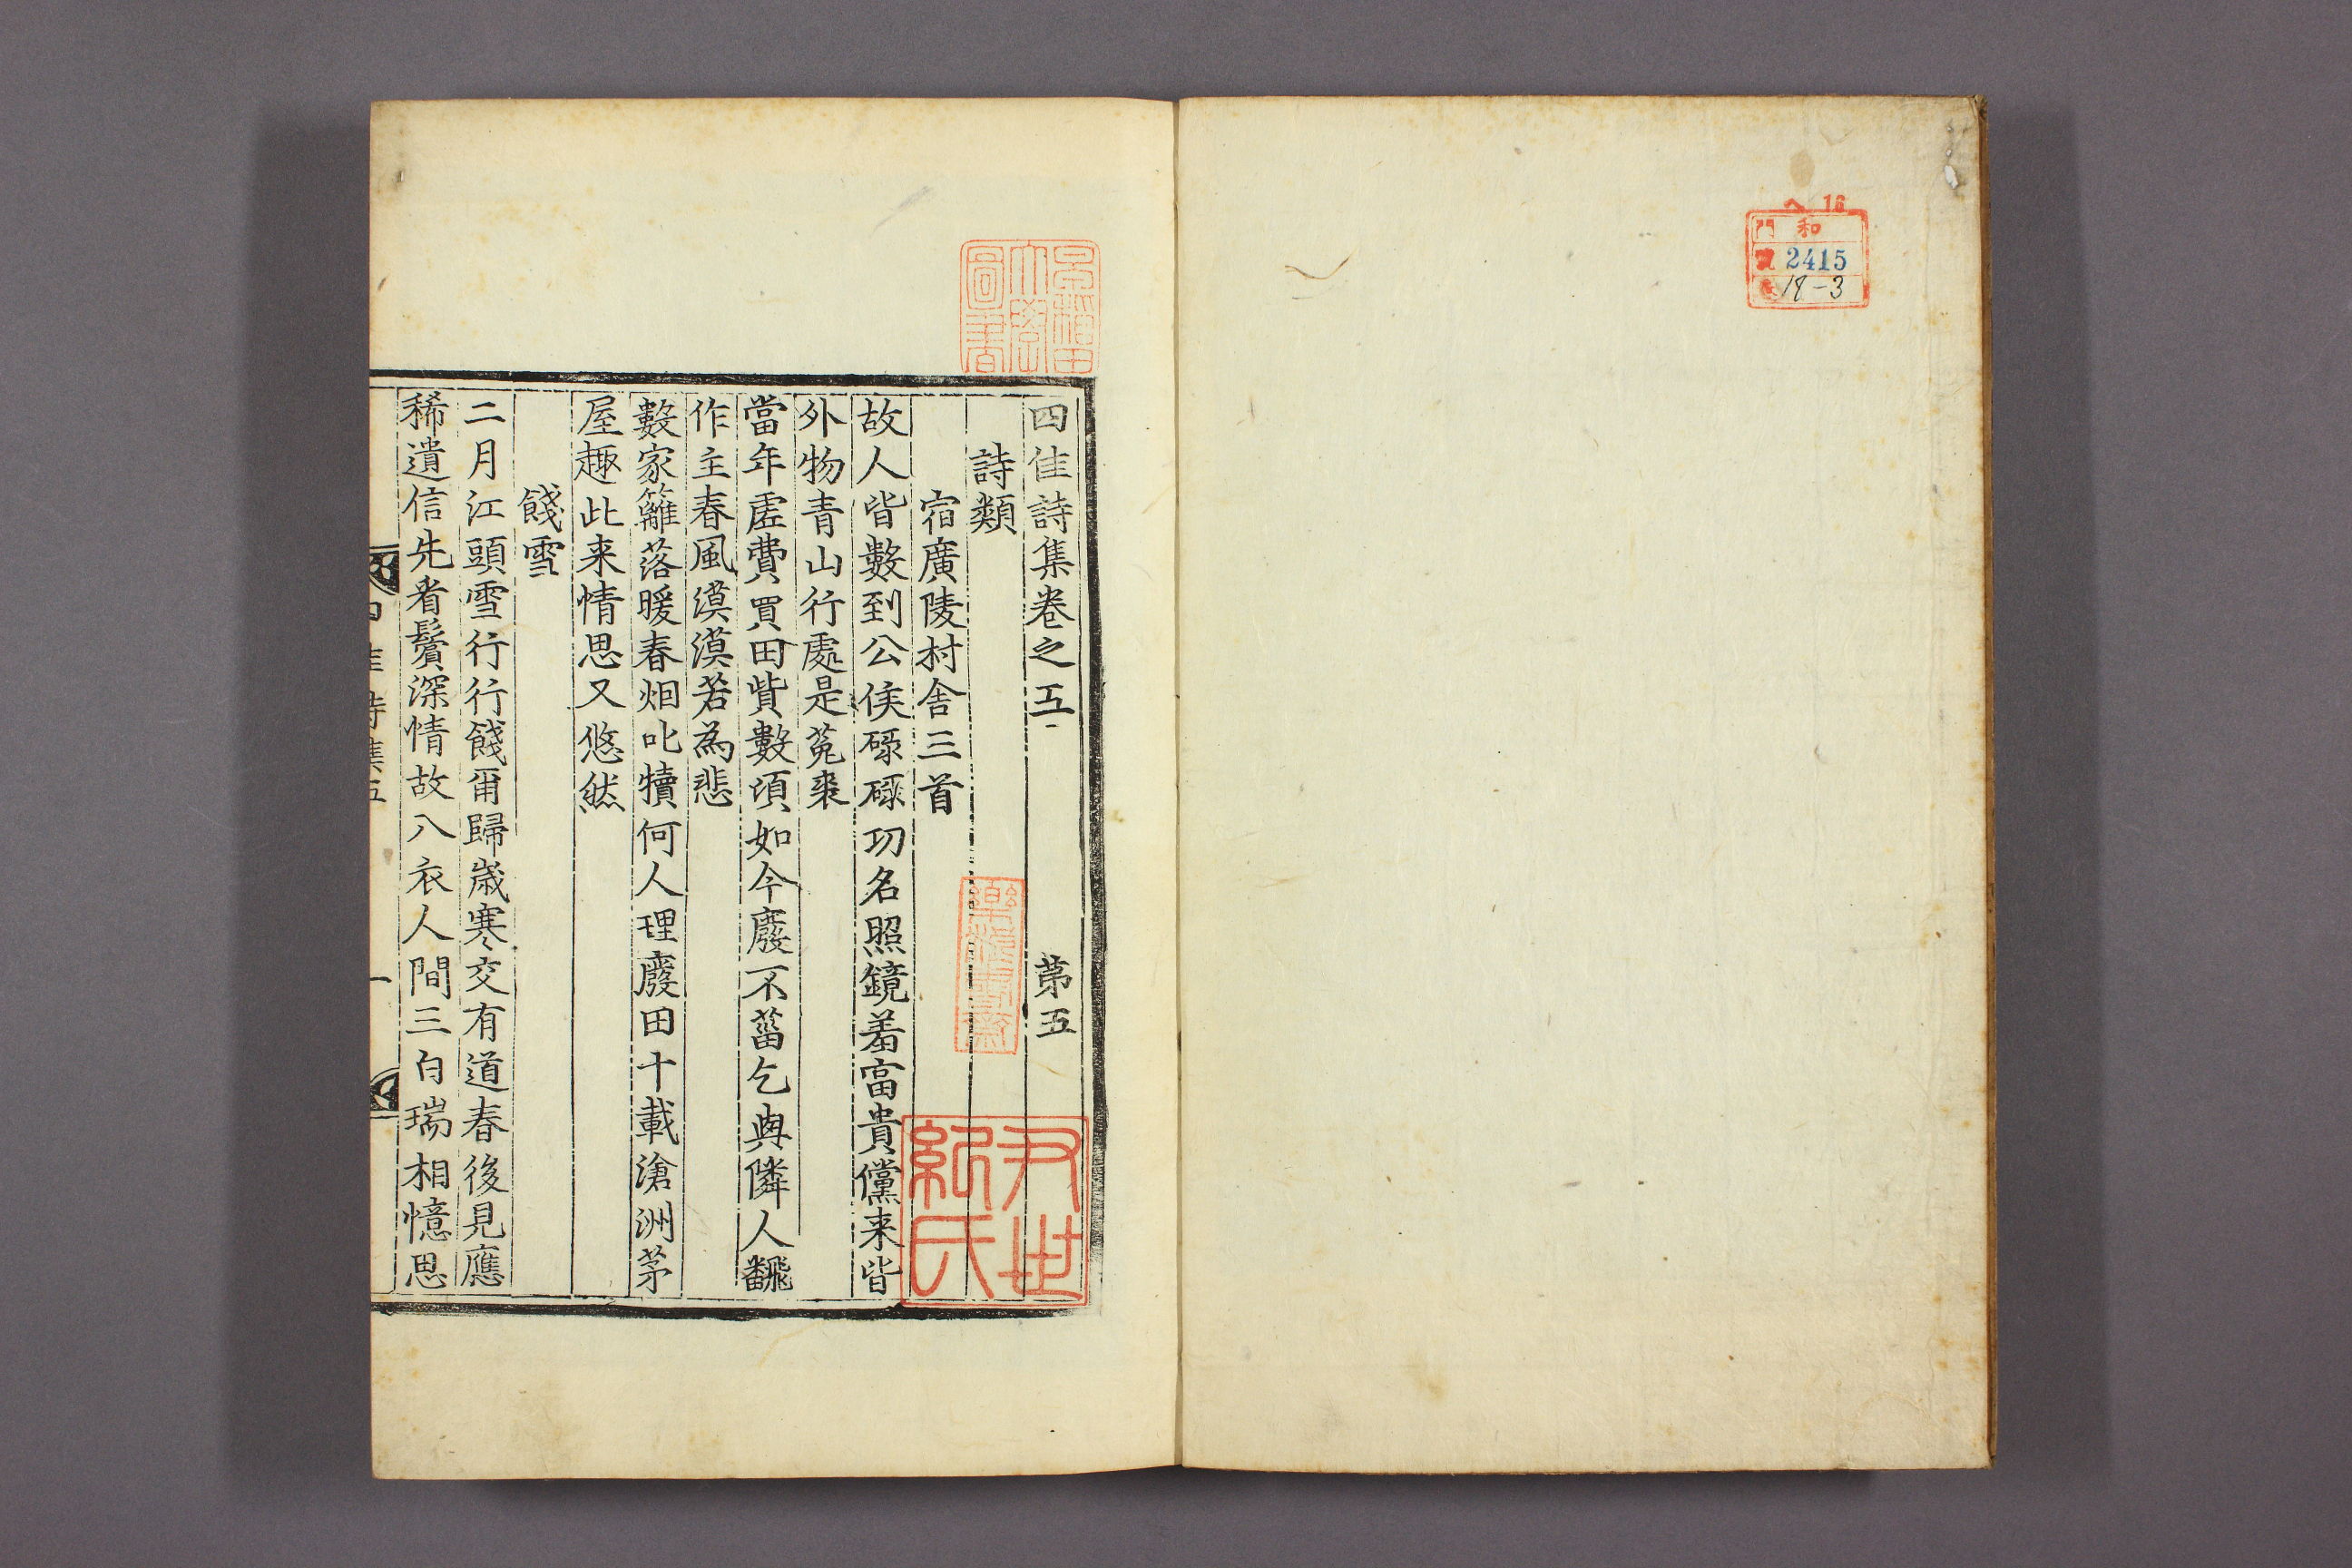 ヘ 16
門 和
號 2415
卷 18-3
早稲田
大學
圖書
四佳詩集卷之五 第五
詩類
宿廣陵村舍三首
故人皆數到公侯碌碌功名照鏡羞富貴儻来皆
外物青山行處是菟裘
當年虛費買田貲數頃如今廢不菑乞與隣人飜
作主春風漠漠若為悲
數家籬落暖春烟叱犢何人理廢田十載滄洲茅
屋趣此来情思又悠然
餞雪
二月江頭雪行行餞甭歸歲寒交有道春後見應
稀遺信先看鬢深情故入衣人間三白瑞相憶思
四佳詩集五
一
尹世
紀氏